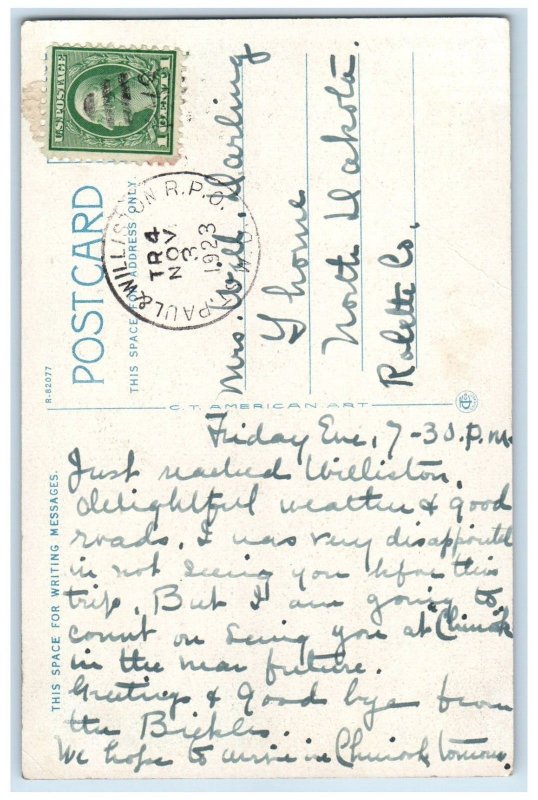 U.S. POSTAGE
1 CENT 1
ST. PAUL & WILLISTON R.P.O.
TR 4
NOV
3
1923
POST CARD
THIS SPACE FOR ADDRESS ONLY
Mrs. Will Darling
Thorne
North Dakota.
Rolette Co,
R-82077
C.T. AMERICAN ART
THIS SPACE FOR WRITING MESSAGES.
Friday Eve, 7-30.P.M.
Just reached Williston,
delightful weather & good
roads, I was very disappointed
in not seeing you before this
trip, But I am going to
count on seeing you at "Chinook"
in the near future.
Greetings & Good bye from
the Bickles.
We hope to arrive in Chinook tomorrow.